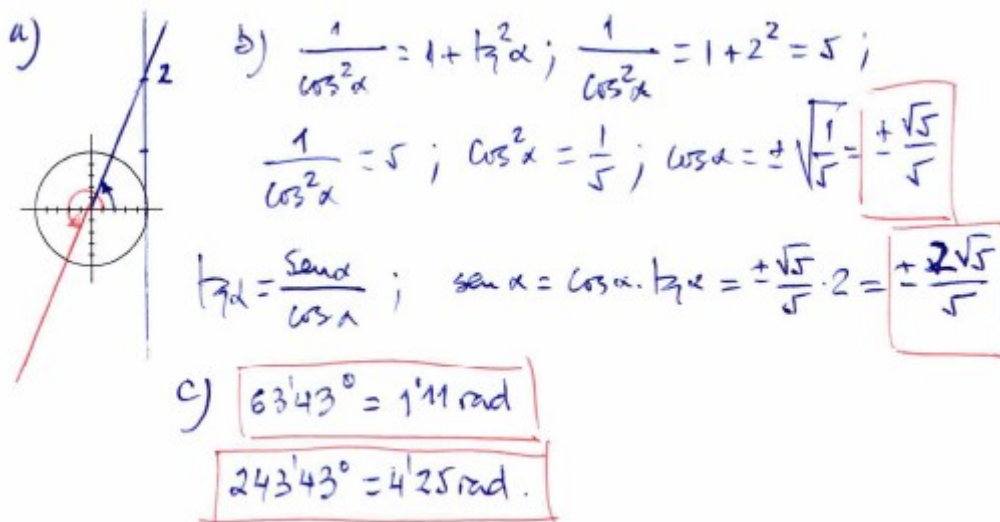 a)
2
b) 1/cos²α = 1 + tg²α ; 1/cos²α = 1 + 2² = 5 ;
1/cos²α = 5 ; cos²α = 1/5 ; cosα = ± √(1/5) = ± √5/5
tgα = senα/cosα ; senα = cosα · tgα = ± √5/5 · 2 = ± 2√5/5
c) 63'43° = 1'11 rad
243'43° = 4'25 rad.